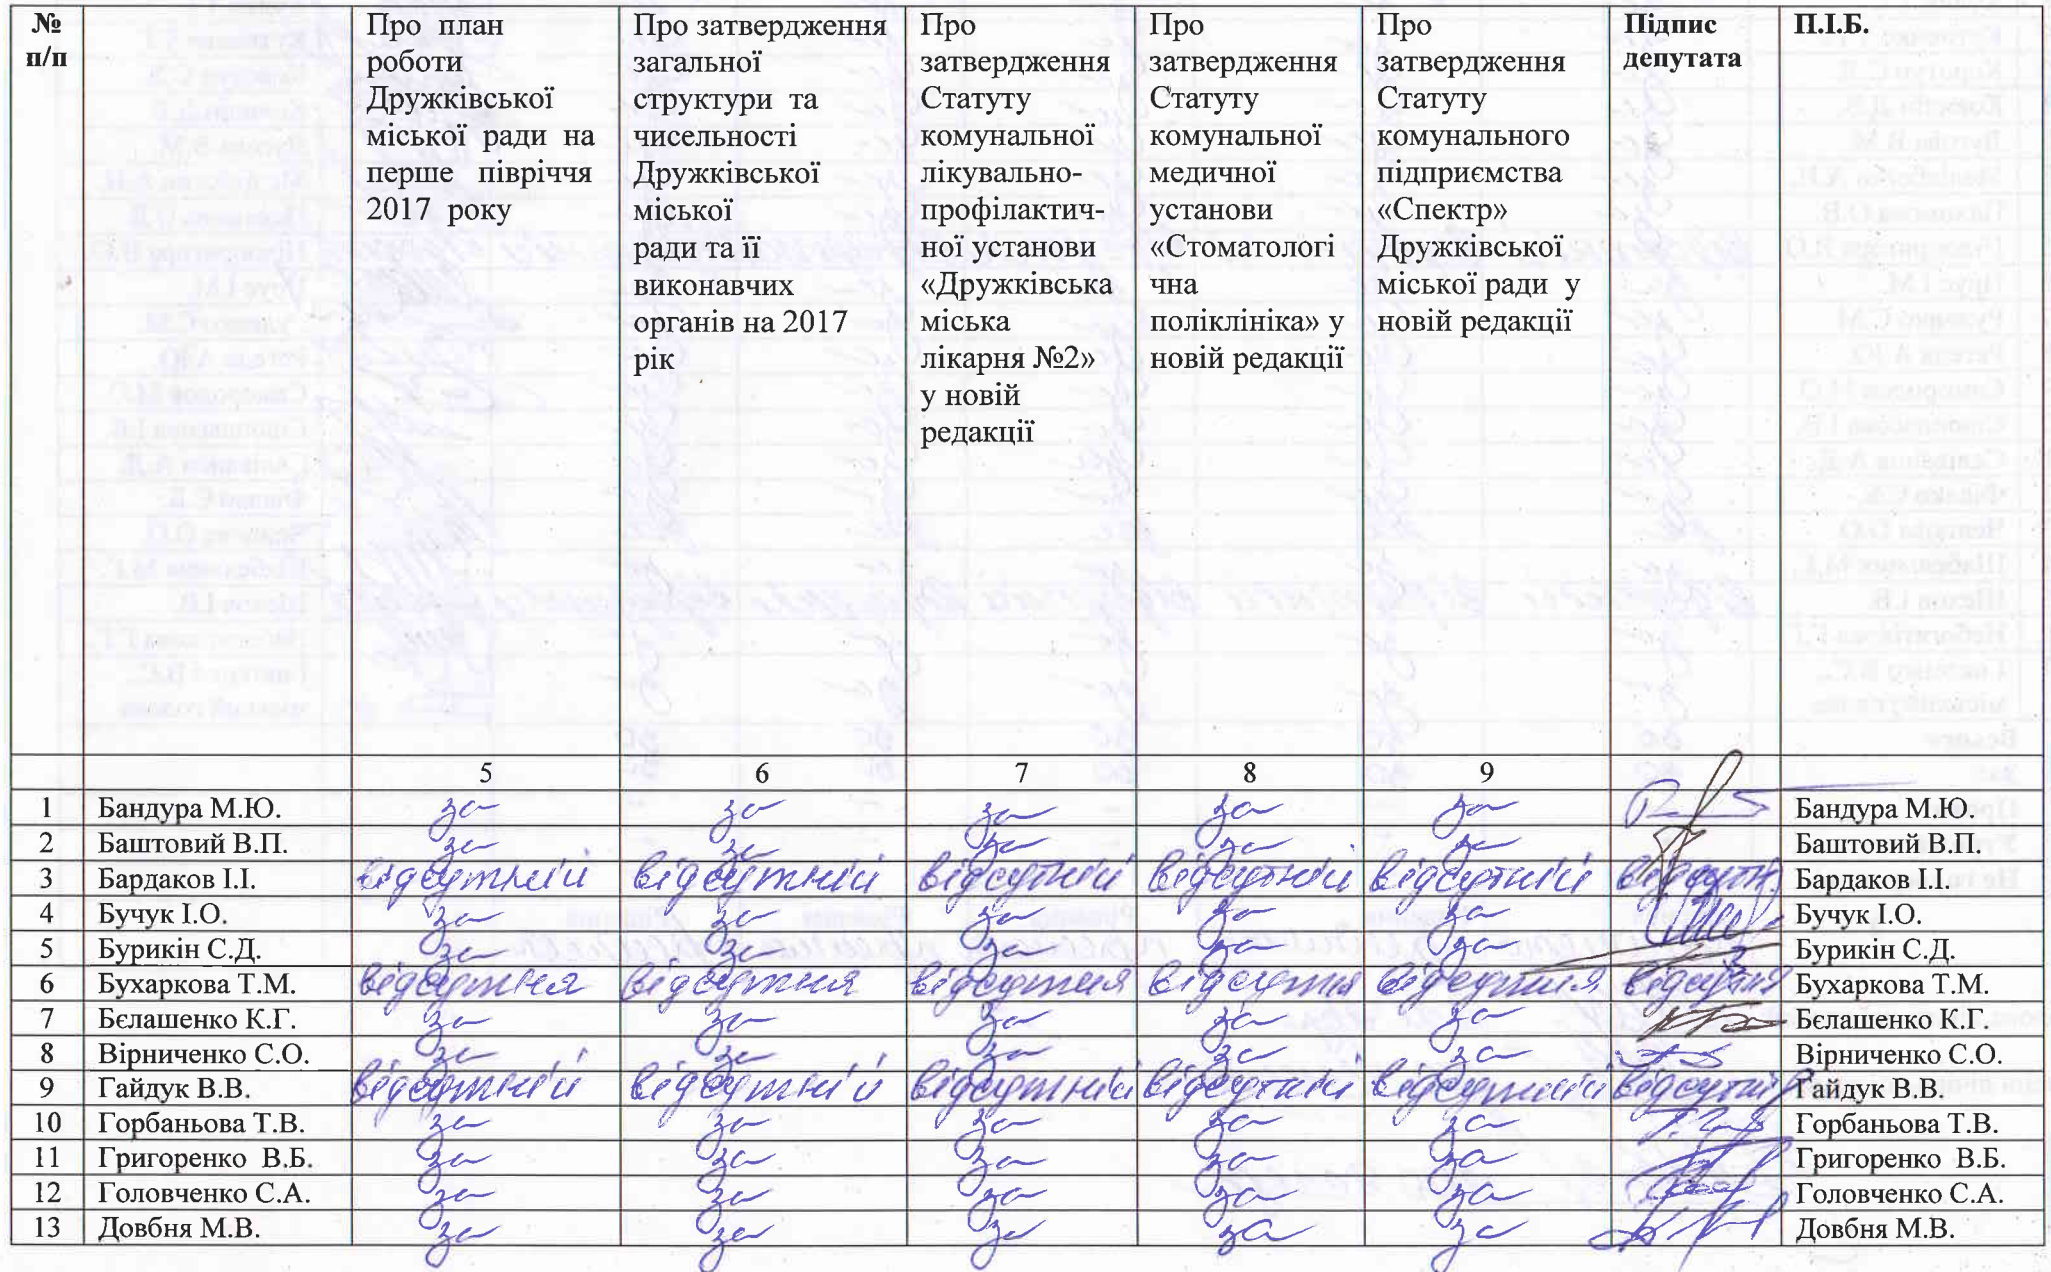 № п/п
Про план роботи Дружківської міської ради на перше півріччя 2017 року
Про затвердження загальної структури та чисельності Дружківської міської ради та її виконавчих органів на 2017 рік
Про затвердження Статуту комунальної лікувально-профілактич-ної установи «Дружківська міська лікарня №2» у новій редакції
Про затвердження Статуту комунальної медичної установи «Стоматологі чна поліклініка» у новій редакції
Про затвердження Статуту комунального підприємства «Спектр» Дружківської міської ради у новій редакції
Підпис депутата
П.І.Б.
5 6 7 8 9
1 Бандура М.Ю. за за за за за Бандура М.Ю.
2 Баштовий В.П. за за за за за Баштовий В.П.
3 Бардаков І.І. відсутній відсутній відсутній відсутній відсутній відсутн. Бардаков І.І.
4 Бучук І.О. за за за за за Бучук І.О.
5 Бурикін С.Д. за за за за за Бурикін С.Д.
6 Бухаркова Т.М. відсутня відсутня відсутня відсутня відсутня відсутня Бухаркова Т.М.
7 Бєлашенко К.Г. за за за за за Бєлашенко К.Г.
8 Вірниченко С.О. за за за за за Вірниченко С.О.
9 Гайдук В.В. відсутній відсутній відсутній відсутній відсутній відсутній Гайдук В.В.
10 Горбаньова Т.В. за за за за за Горбаньова Т.В.
11 Григоренко В.Б. за за за за за Григоренко В.Б.
12 Головченко С.А. за за за за за Головченко С.А.
13 Довбня М.В. за за за за за Довбня М.В.